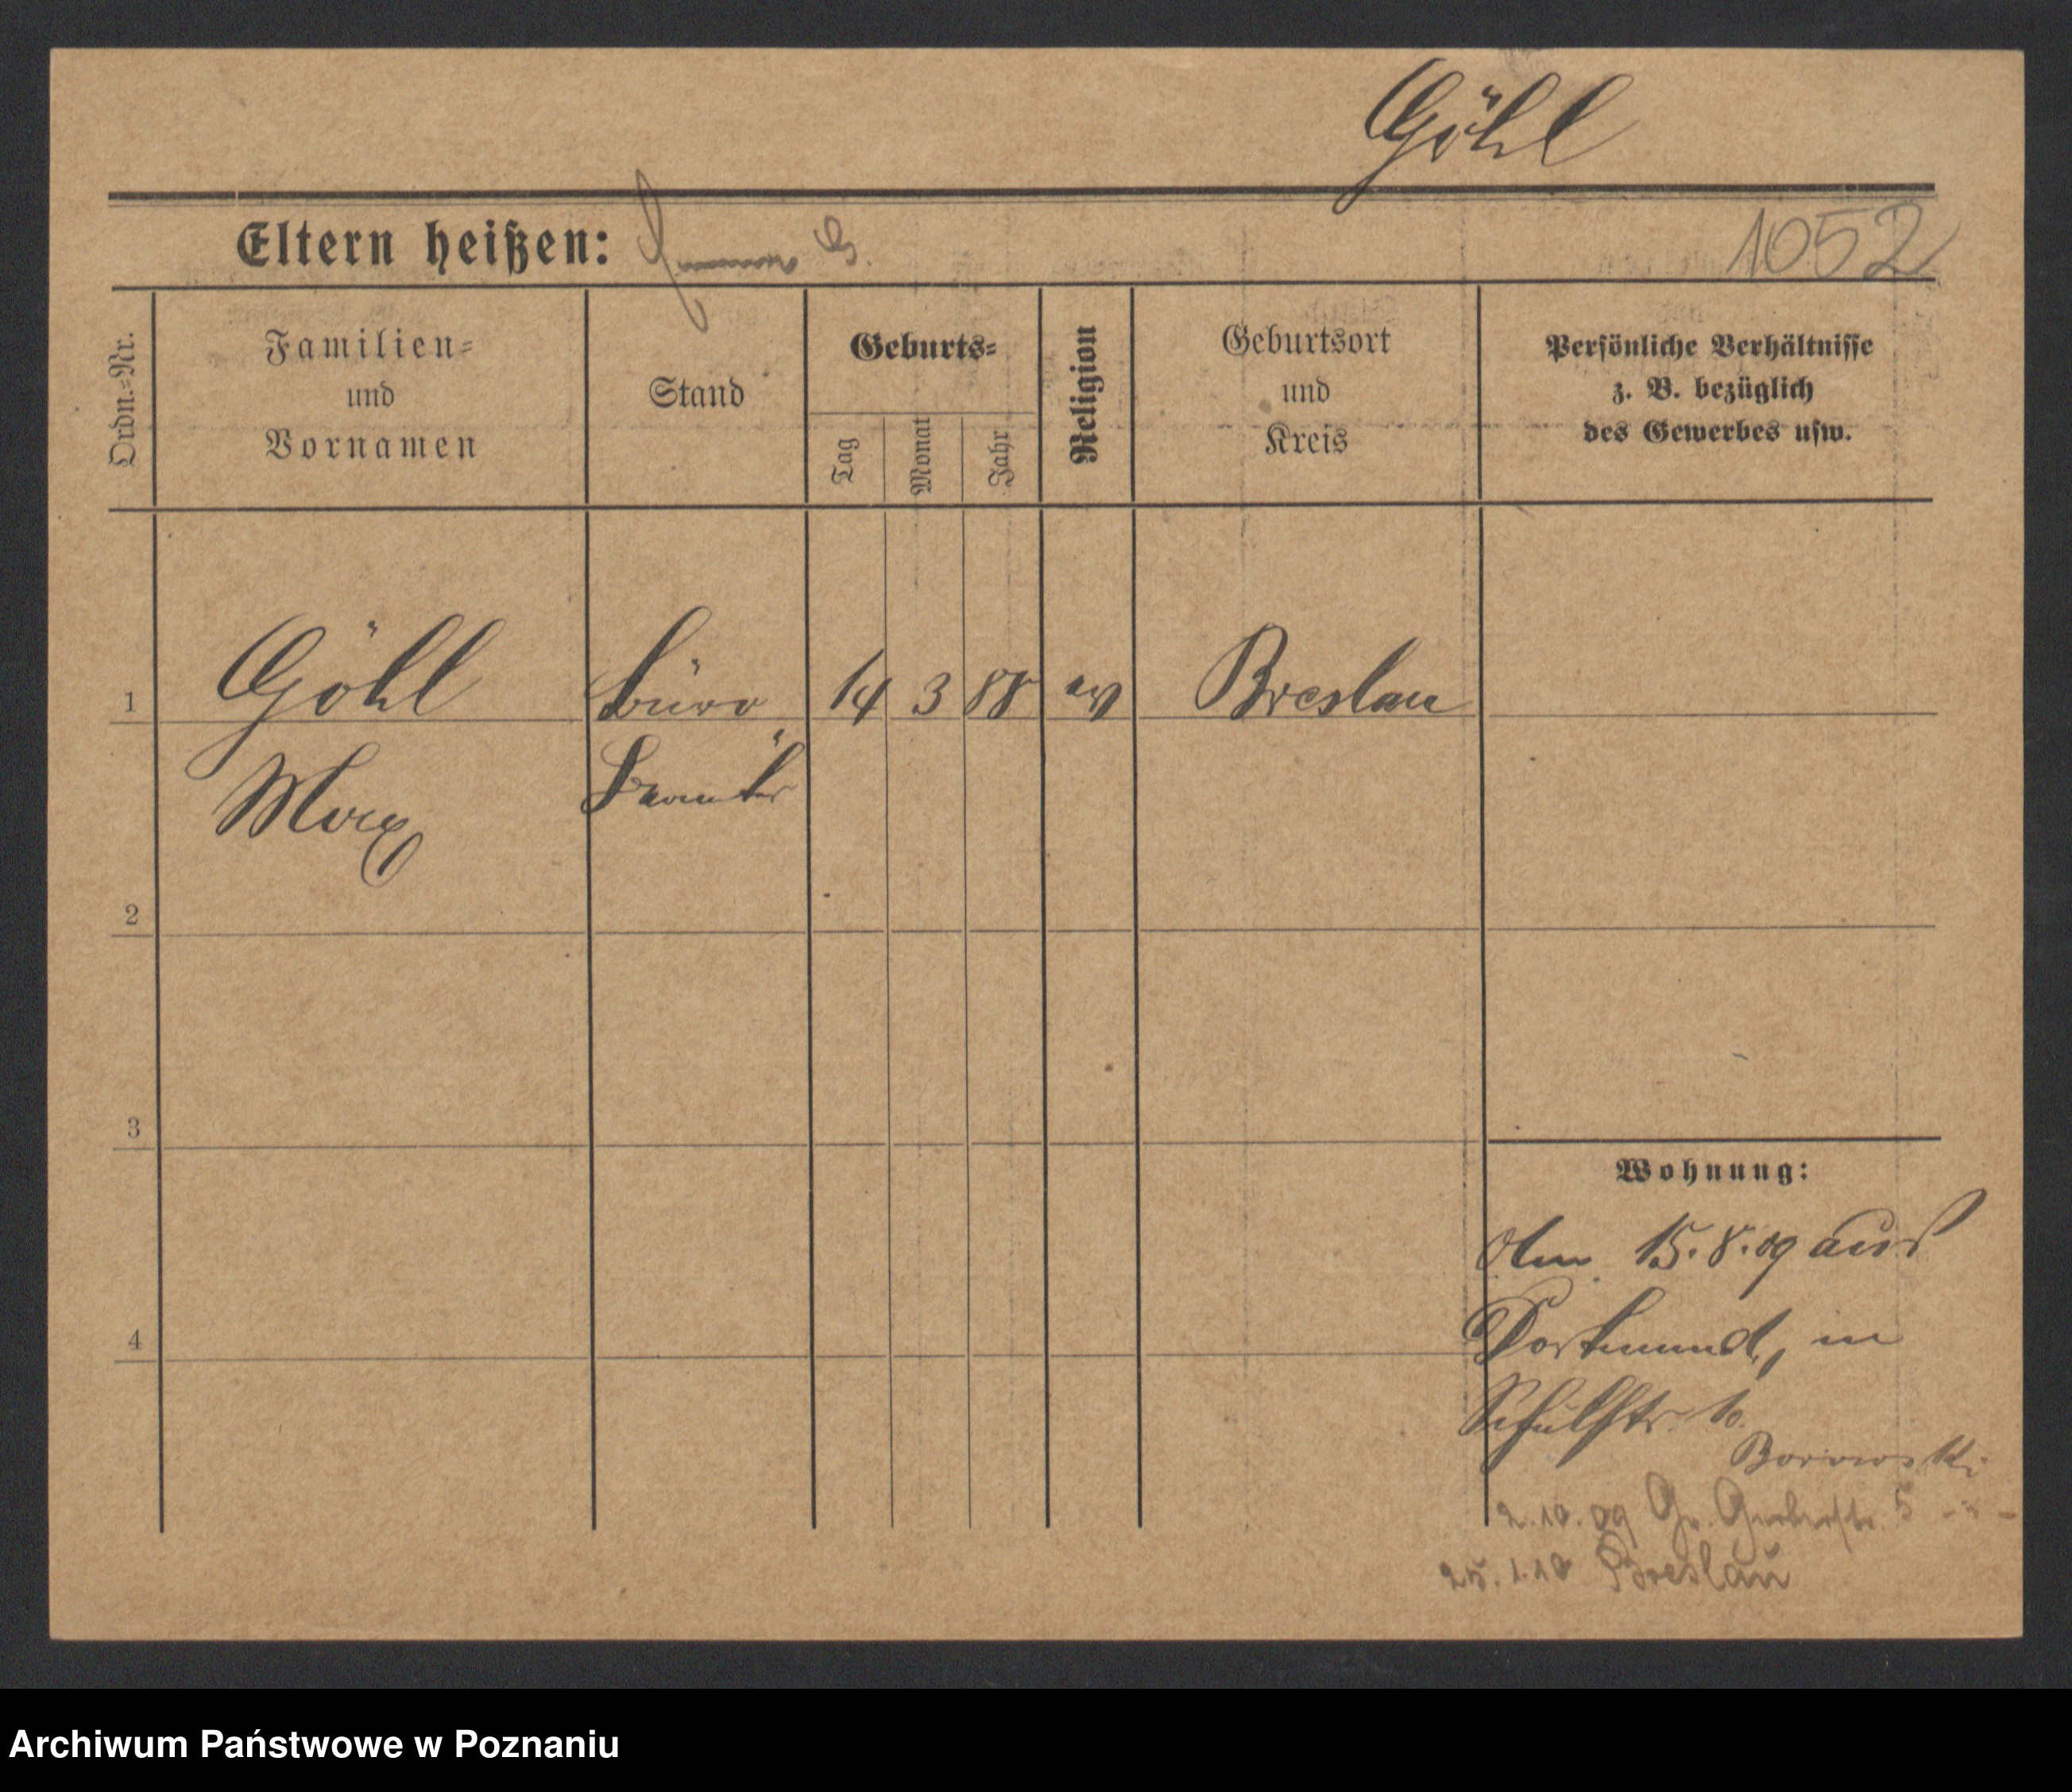 Göhl
Eltern heißen: G.
1052
Ordn.=Nr.
Familien=
und
Vornamen
Stand
Geburts=
Tag
Monat
Jahr
Religion
Geburtsort
und
Kreis
Persönliche Verhältnisse
z. B. bezüglich
des Gewerbes usw.
1 Göhl Büro 14 3 88 ev Breslau
Max Beamter
2
3
4
Wohnung:
Am 15.8.09 aus
Dortmund, in
Schulstr. 10.
Borowski
2.10.09 Gr. Gerberstr. 5
25.1.10 Breslau
Archiwum Państwowe w Poznaniu